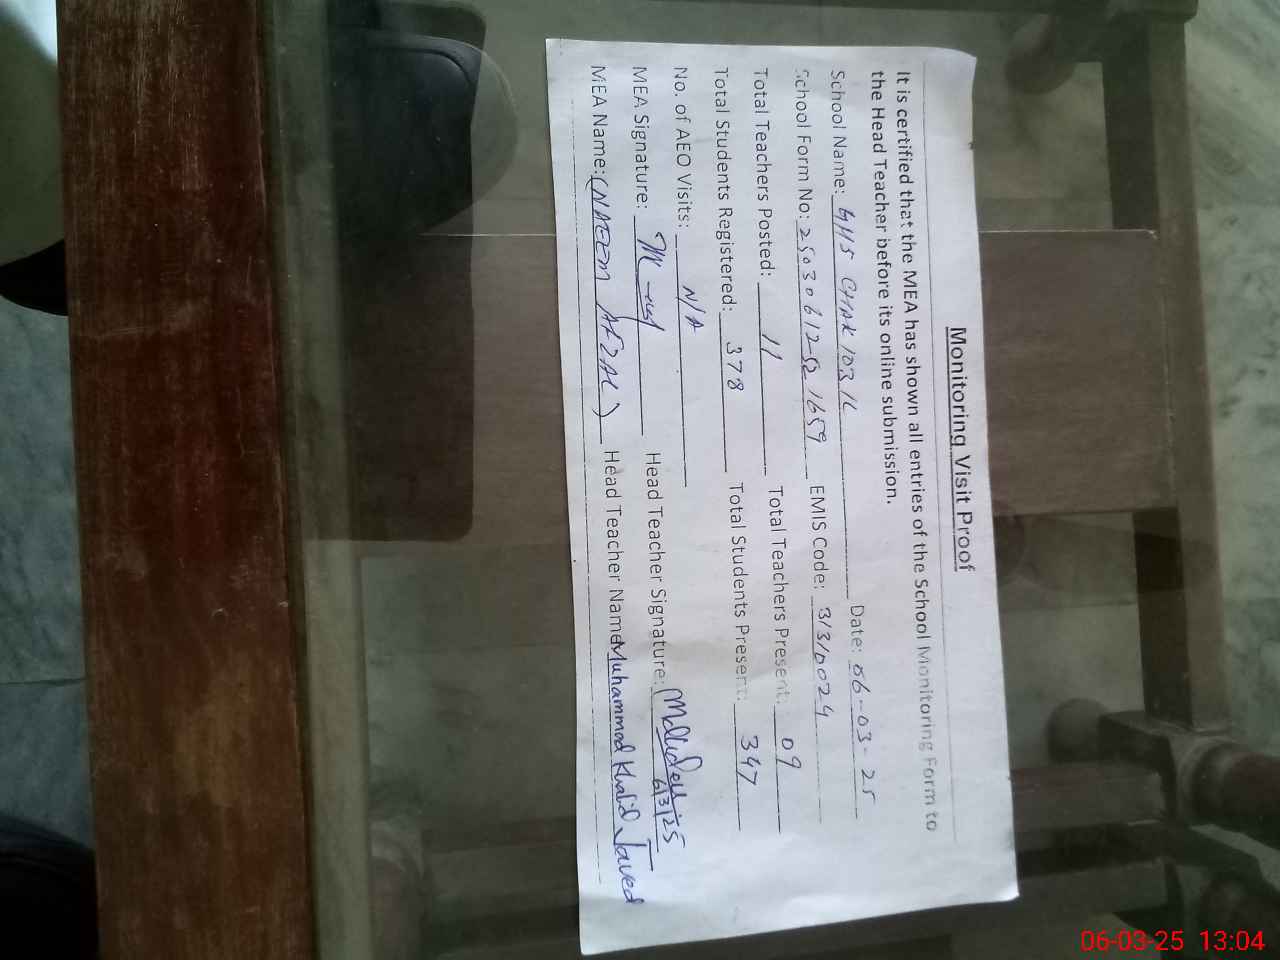 Monitoring Visit Proof
It is certified that the MEA has shown all entries of the School Monitoring Form to
the Head Teacher before its online submission.
School Name: GHS CHAK 103 1L Date: 06-03-25
School Form No: EMIS Code: 31310024
Total Teachers Posted: 11 Total Teachers Present: 09
Total Students Registered: 378 Total Students Present: 347
No. of AEO Visits: N/A
MEA Signature: Head Teacher Signature: 6/3/25
MEA Name: (NAEEM AFZAL) Head Teacher Name Muhammad Khalid Javed
06-03-25 13:04